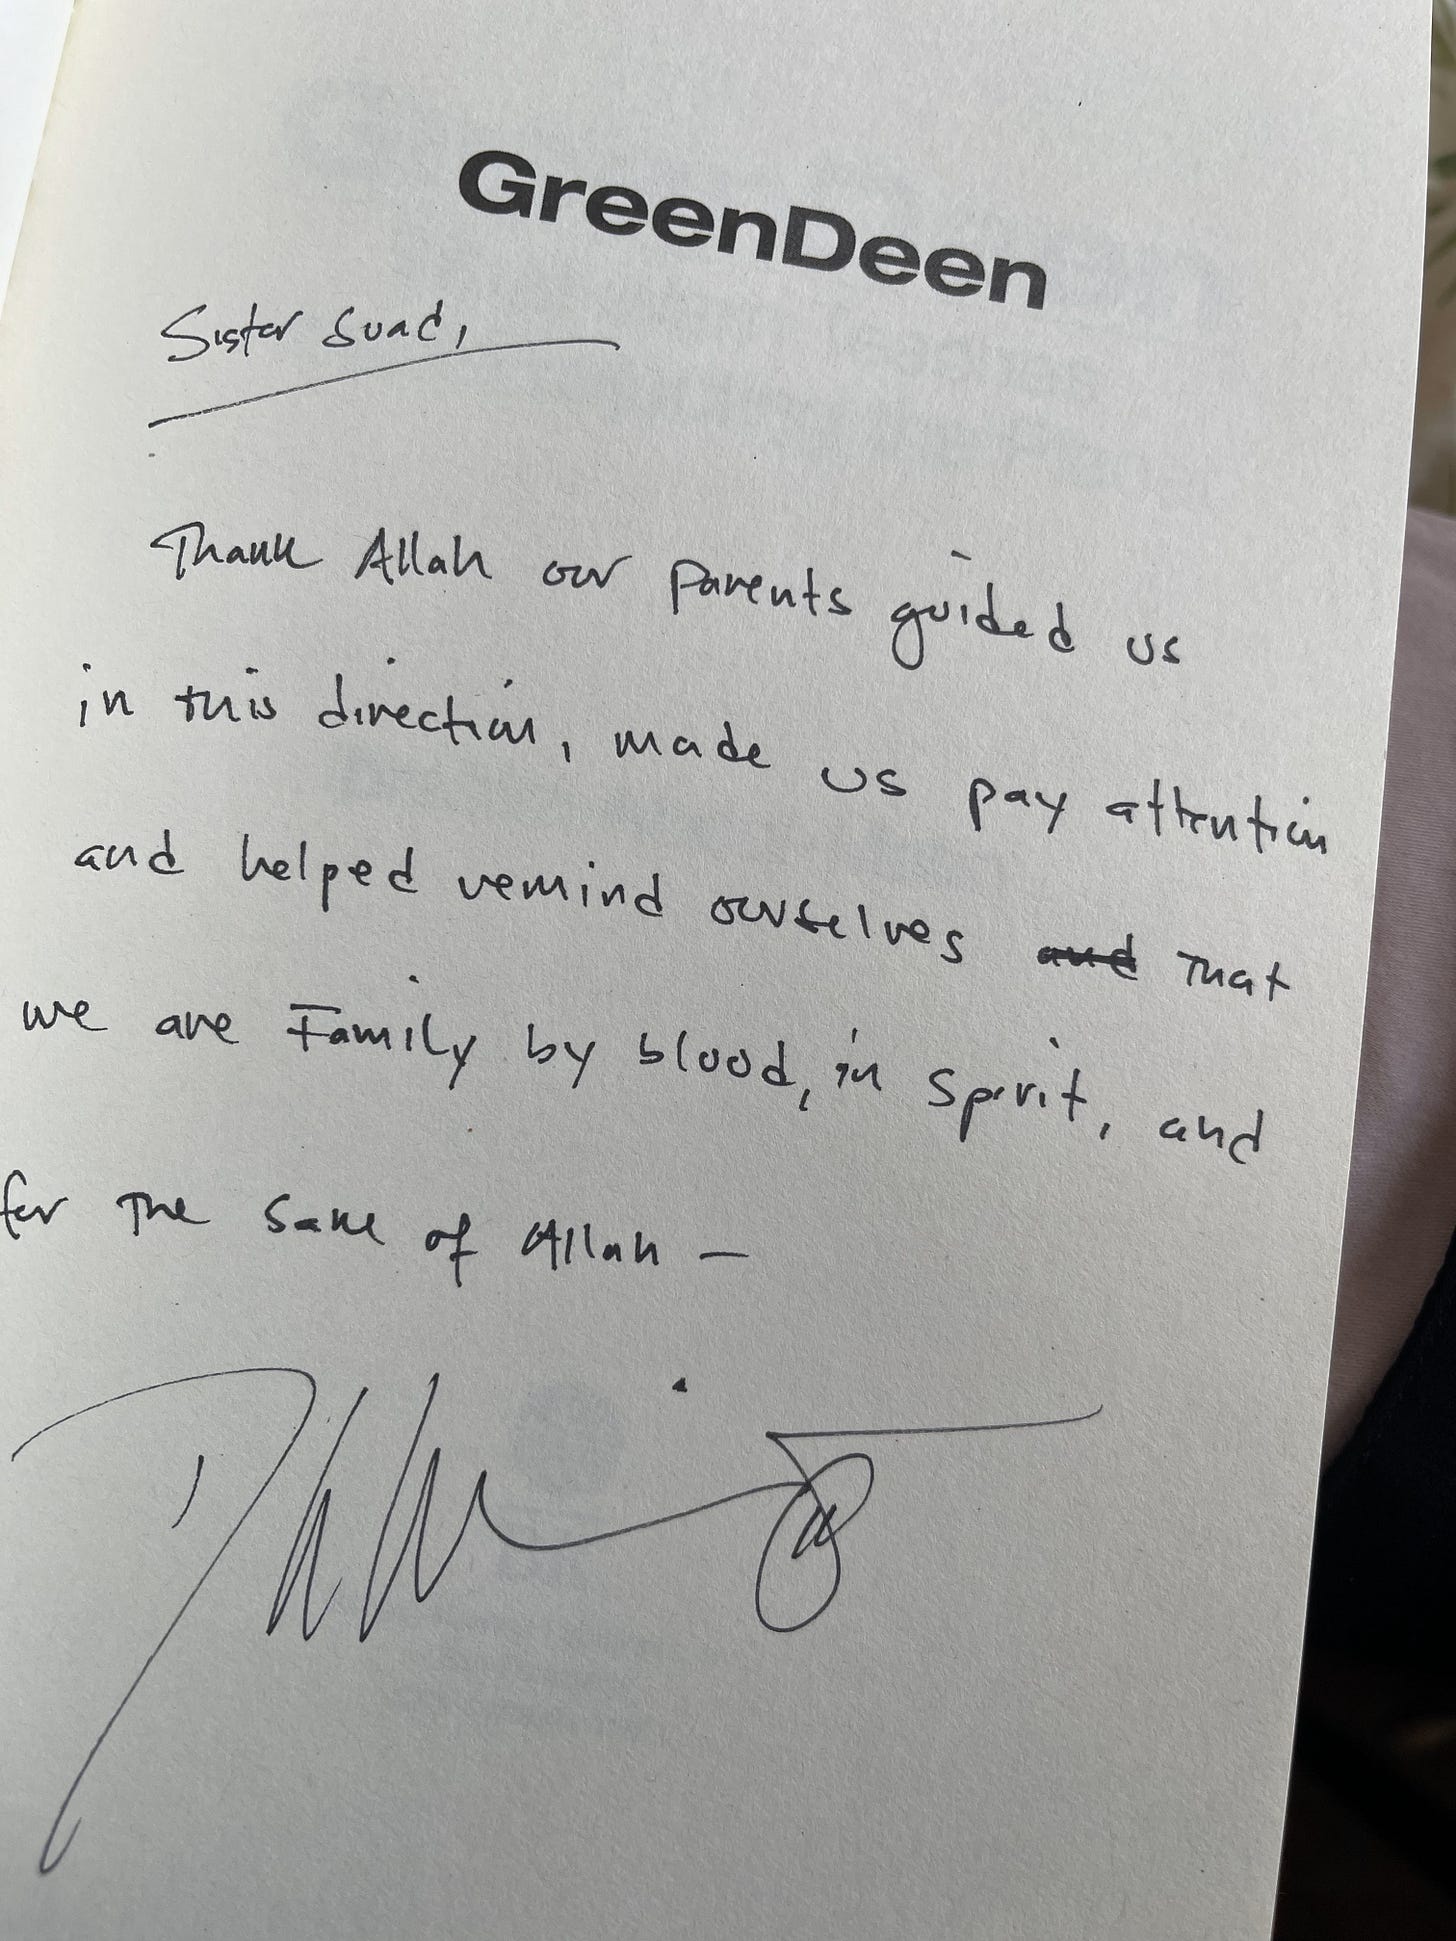 GreenDeen
Sister Suad,
Thank Allah our parents guided us
in this direction, made us pay attention
and helped remind ourselves and that
we are Family by blood, in spirit, and
for the sake of Allah —